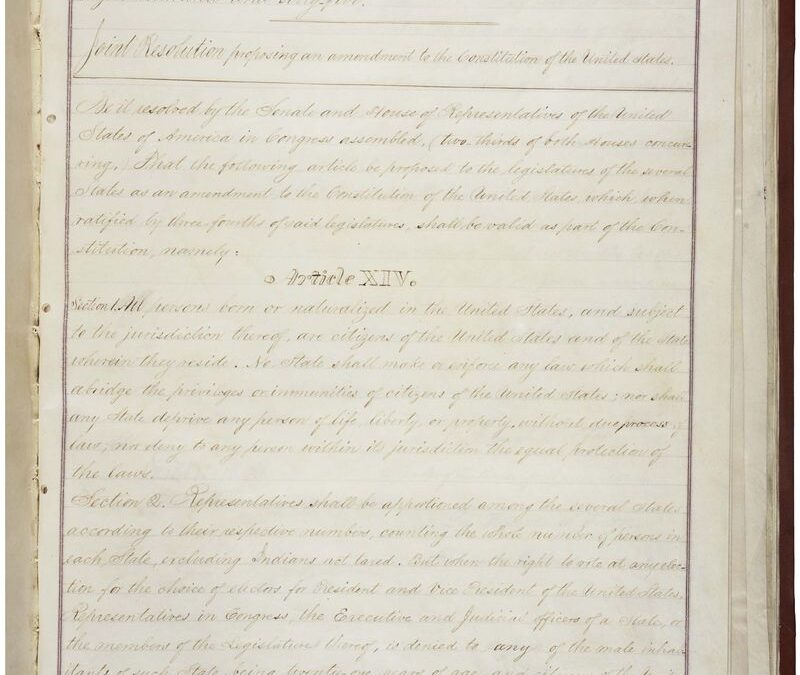 Joint Resolution proposing an amendment to the Constitution of the United States.
Be it resolved by the Senate and House of Representatives of the United
States of America in Congress assembled, (two-thirds of both Houses concur-
ring,) That the following article be proposed to the legislatures of the several
States as an amendment to the Constitution of the United States, which, when
ratified by three fourths of said legislatures, shall be valid as part of the Con-
stitution, namely:
Article XIV.
Section 1. All persons born or naturalized in the United States, and subject
to the jurisdiction thereof, are citizens of the United States and of the State
wherein they reside. No State shall make or enforce any law which shall
abridge the privileges or immunities of citizens of the United States; nor shall
any State deprive any person of life, liberty, or property, without due process of
law; nor deny to any person within its jurisdiction the equal protection of
the laws.
Section 2. Representatives shall be apportioned among the several States
according to their respective numbers, counting the whole number of persons in
each State, excluding Indians not taxed. But when the right to vote at any elec-
tion for the choice of electors for President and Vice President of the United States,
Representatives in Congress, the Executive and Judicial officers of a State, or
the members of the Legislature thereof, is denied to any of the male inhab-
itants of such State, being twenty-one years of age, and